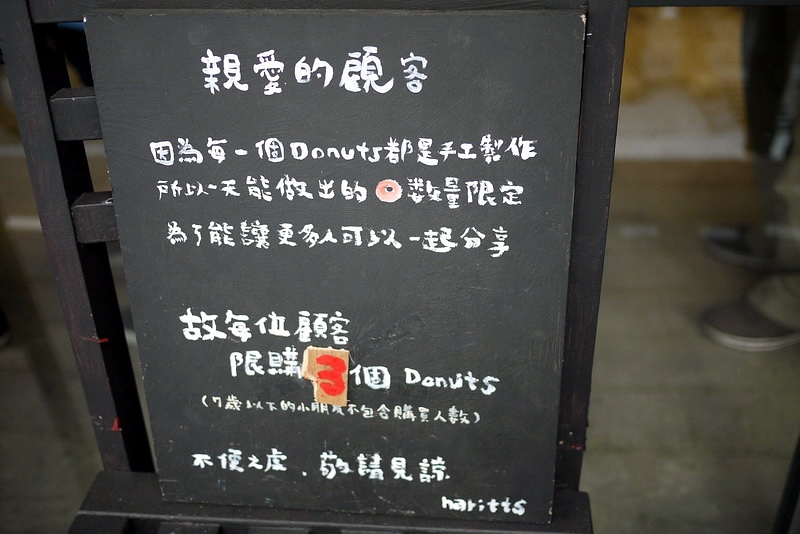 親愛的顧客
因為每一個Donuts都是手工製作
所以一天能做出的 數量限定
為了能讓更多人可以一起分享
故每位顧客
限購3個 Donuts
(7歲以下的小朋友不包含購買人數)
不便之處、敬請見諒.
haritts